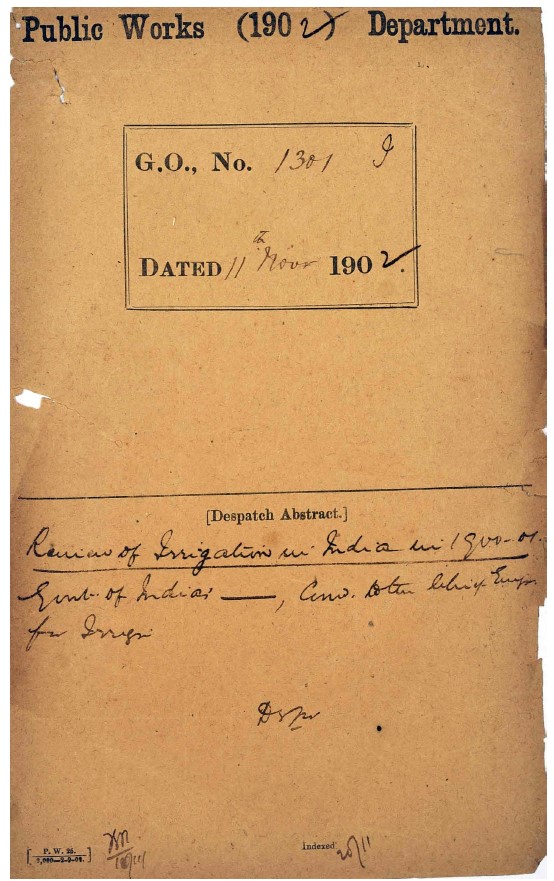 Public Works (1902) Department.
G.O., No. 1301 I
DATED 11th Novr 1902.
[Despatch Abstract.]
Review of Irrigation in India in 1900-01.
Govt. of India's —, to the Chief Engr.
for Irrign
P. W. 25.
Indexed 20/11